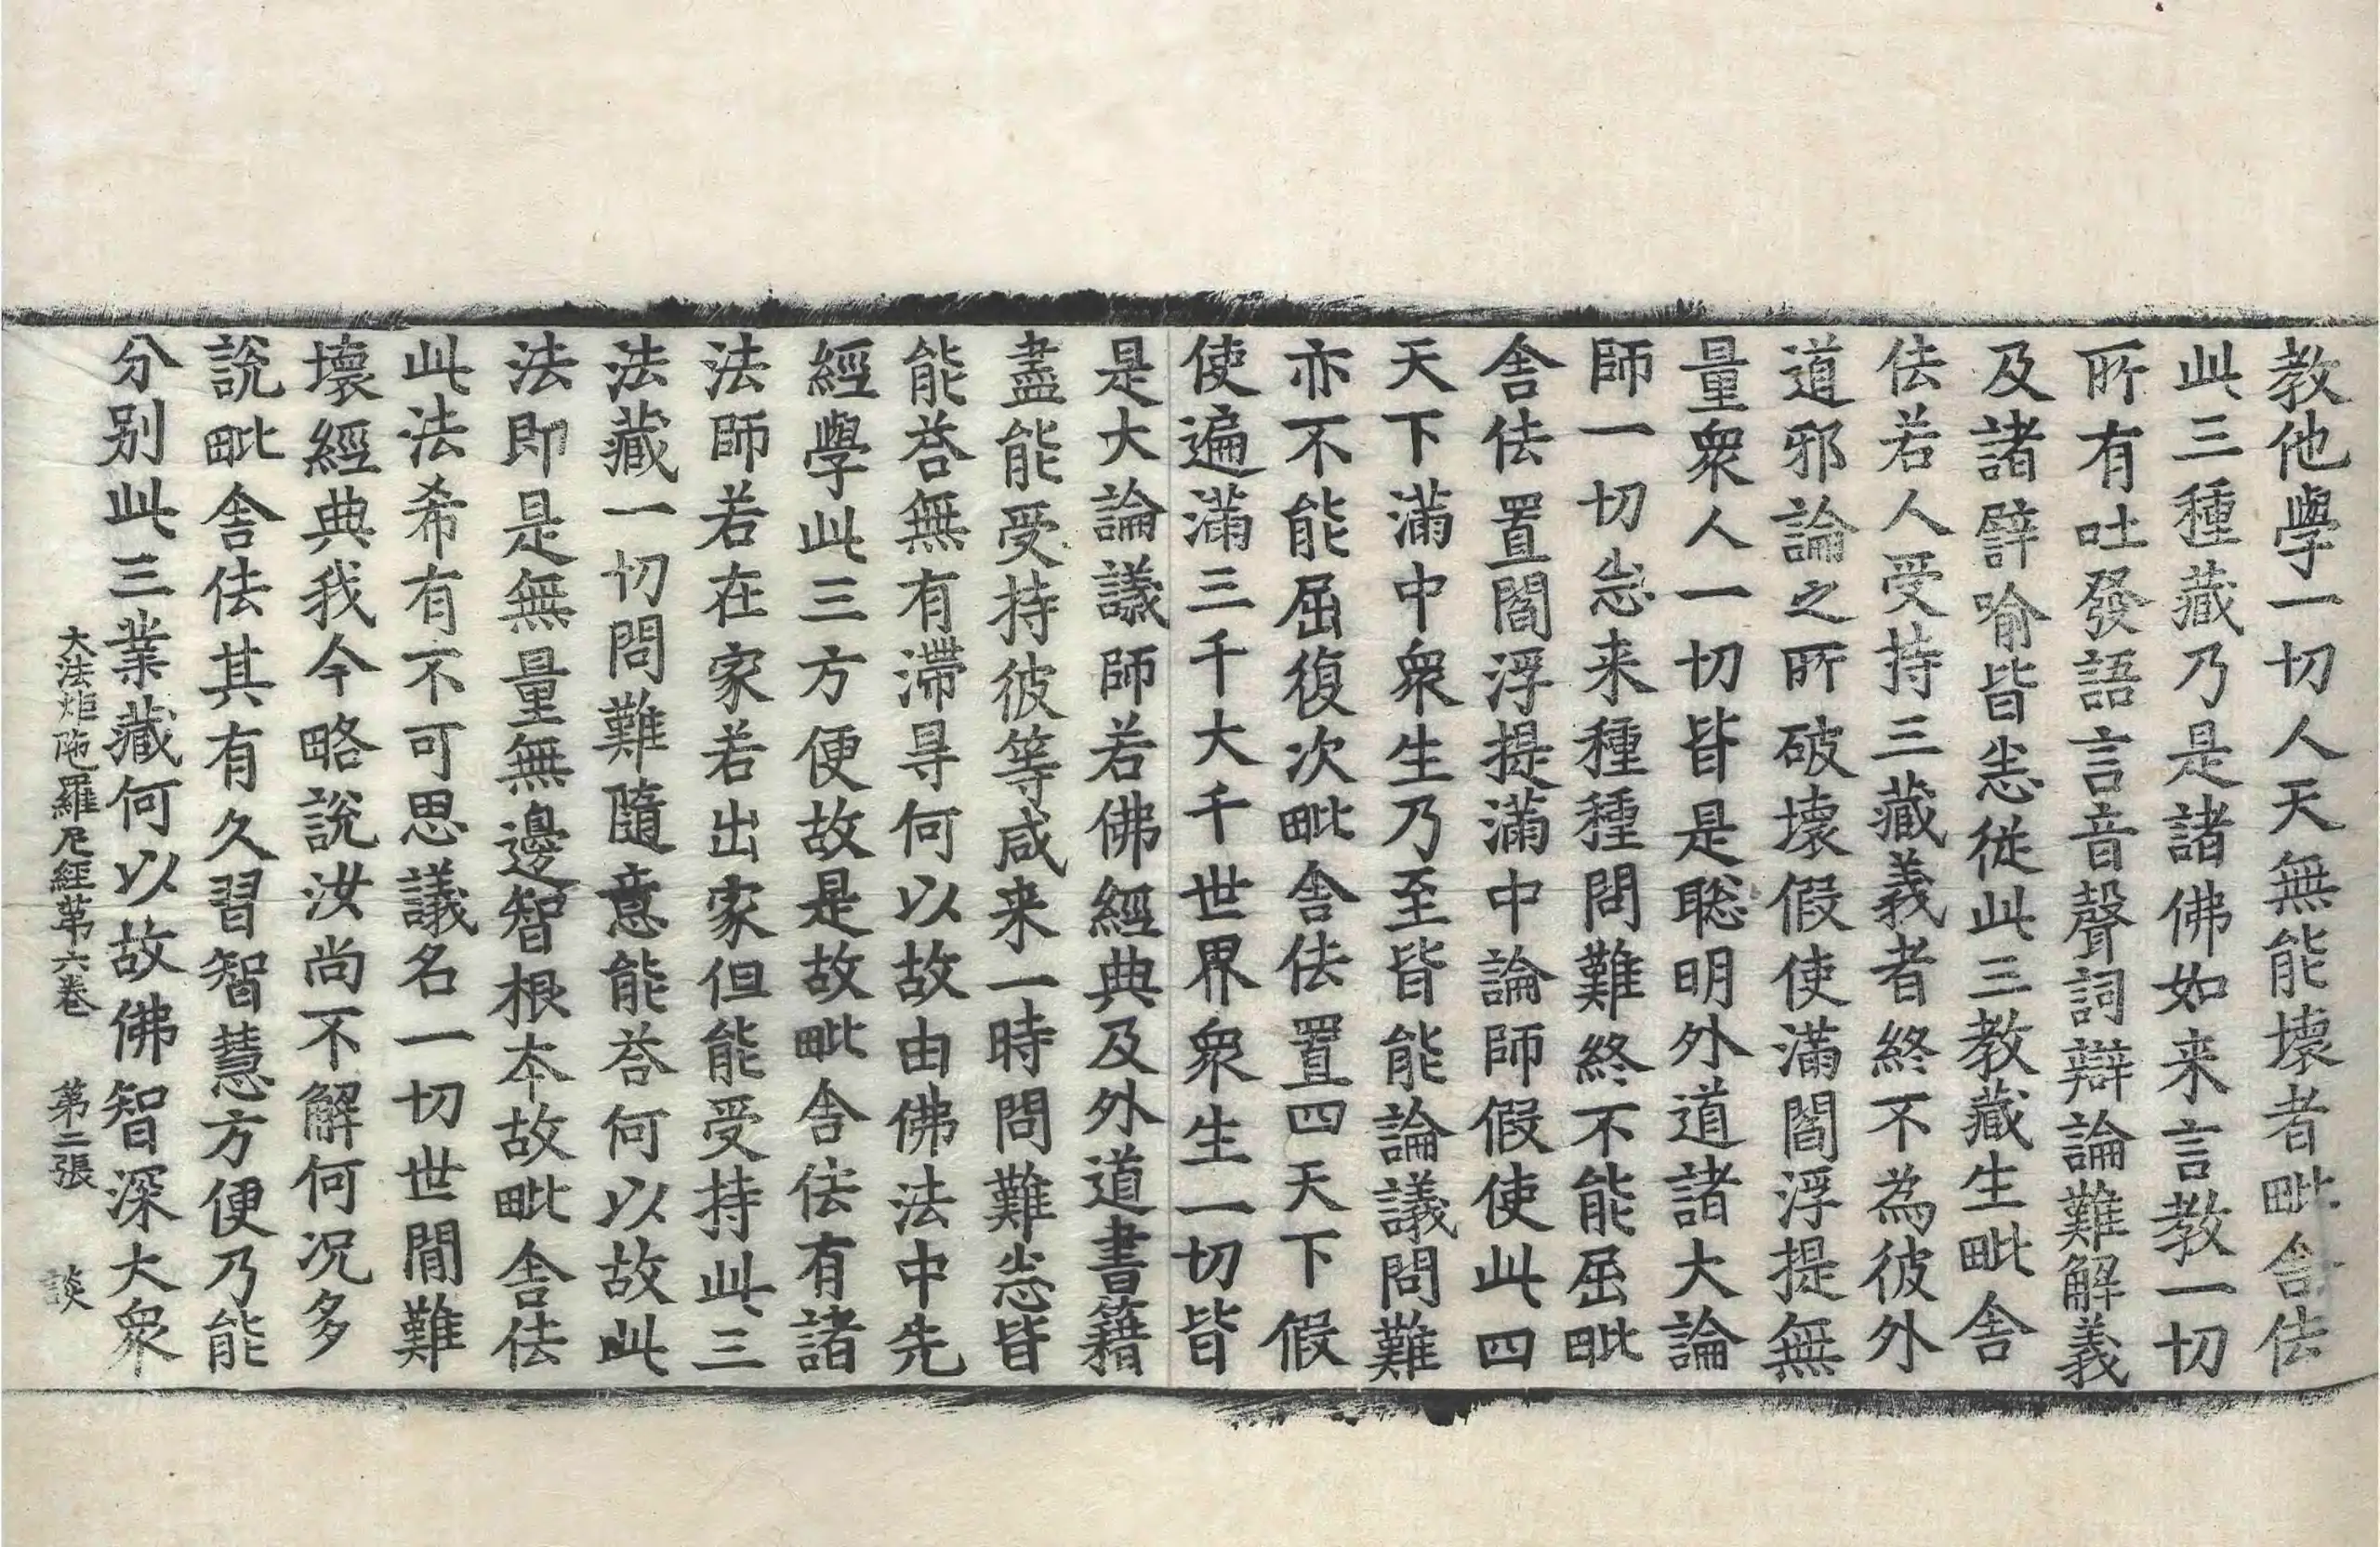 教他學一切人天無能壞者毗舍佉
此三種藏乃是諸佛如来言教一切
所有吐發語言音聲詞辯論難解義
及諸譬喻皆悉從此三教藏生毗舍
佉若人受持三藏義者終不為彼外
道邪論之所破壞假使滿閻浮提無
量衆人一切皆是聡明外道諸大論
師一切悉来種種問難終不能屈毗
舍佉置閻浮提滿中論師假使此四
天下滿中衆生乃至皆能論議問難
亦不能屈復次毗舍佉置四天下假
使遍滿三千大千世界衆生一切皆
是大論議師若佛經典及外道書籍
盡能受持彼等咸来一時問難悉皆
能荅無有滯㝵何以故由佛法中先
經學此三方便故是故毗舍佉有諸
法師若在家若出家但能受持此三
法藏一切問難隨意能荅何以故此
法即是無量無邊智根夲故毗舍佉
此法希有不可思議名一切世間難
壞經典我今略說汝尚不解何况多
說毗舍佉其有久習智慧方便乃能
分别此三業藏何以故佛智深大衆
大法炬陁羅尼經苐六卷　第二張　談